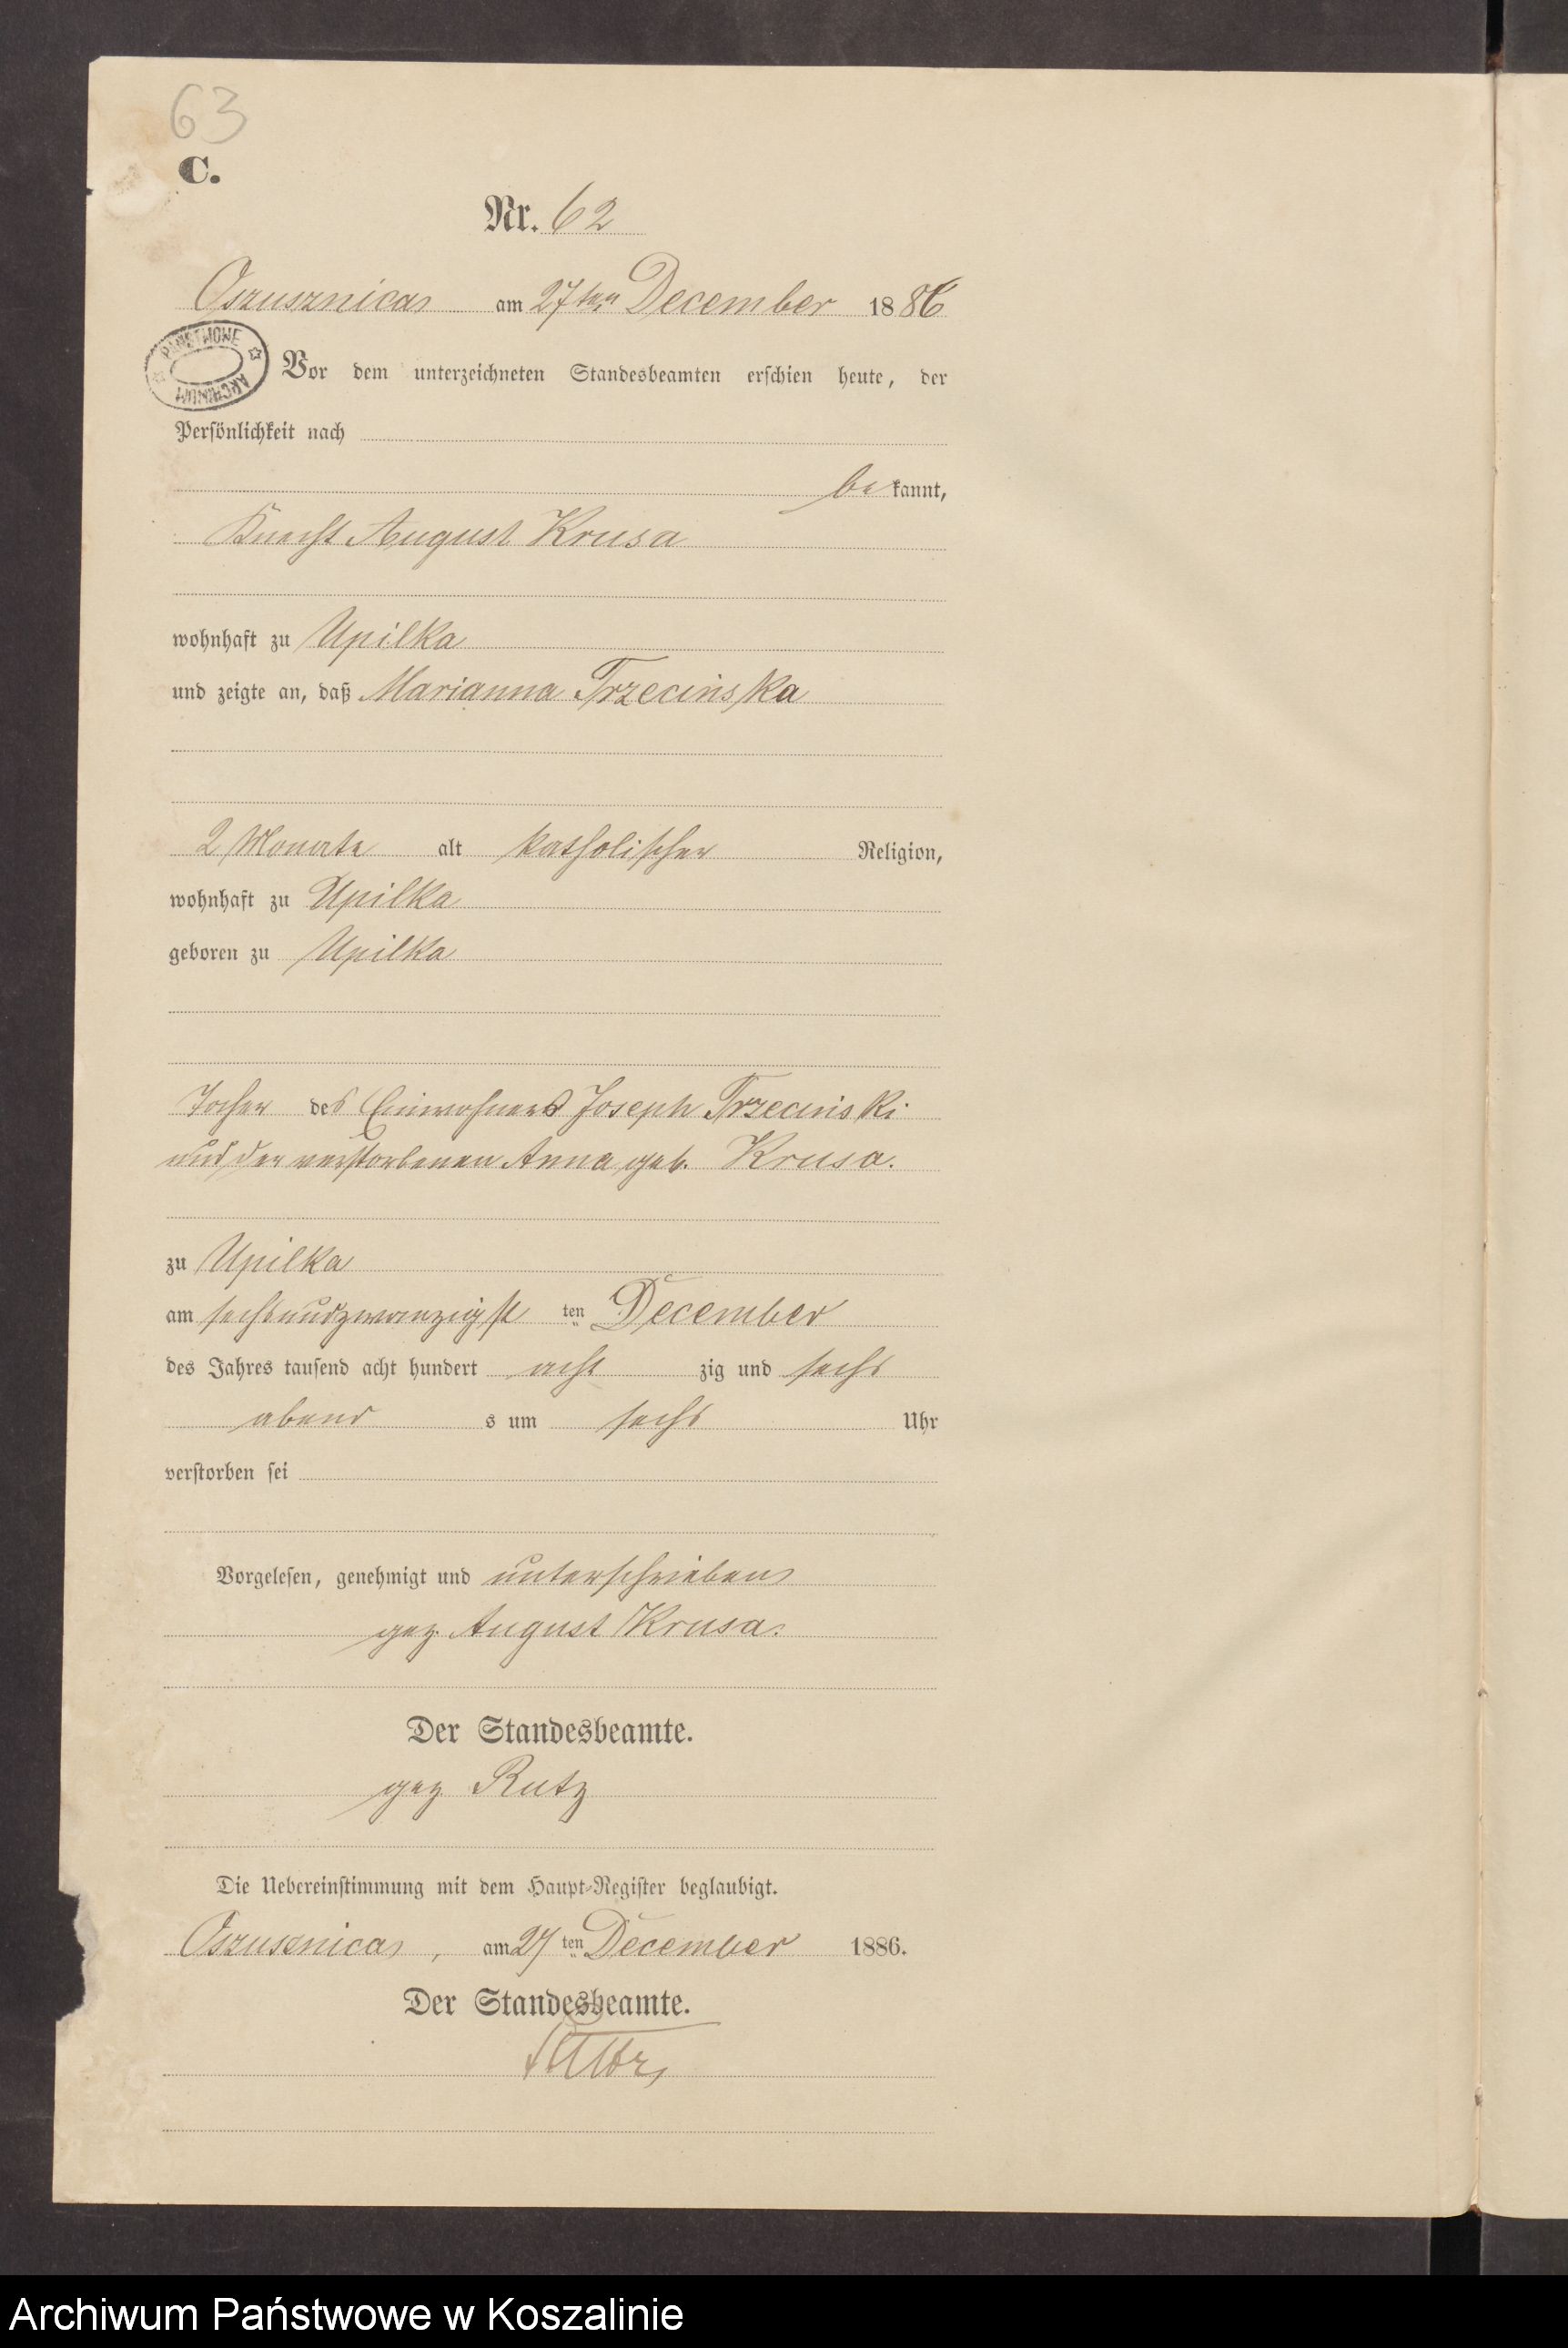 63
C.
Nr. 62
Oszusznica am 27ten December 1886
PAŃSTWOWE ARCHIWUM
Vor dem unterzeichneten Standesbeamten erschien heute, der
Persönlichkeit nach
bekannt,
Knecht August Krusa
wohnhaft zu Upilka
und zeigte an, daß Marianna Trzecinska
2 Monate alt katholischer Religion,
wohnhaft zu Upilka
geboren zu Upilka
Tochter des Einwohners Joseph Trzecinski
und der verstorbenen Anna geb. Krusa.
zu Upilka
am sechsundzwanzigsten December
des Jahres tausend acht hundert achtzig und sechs
abends um sechs Uhr
verstorben sei
Vorgelesen, genehmigt und unterschrieben
gez. August Krusa.
Der Standesbeamte.
gez Rutz
Die Uebereinstimmung mit dem Haupt-Register beglaubigt.
Oszusznica, am 27ten December 1886.
Der Standesbeamte.
Archiwum Państwowe w Koszalinie